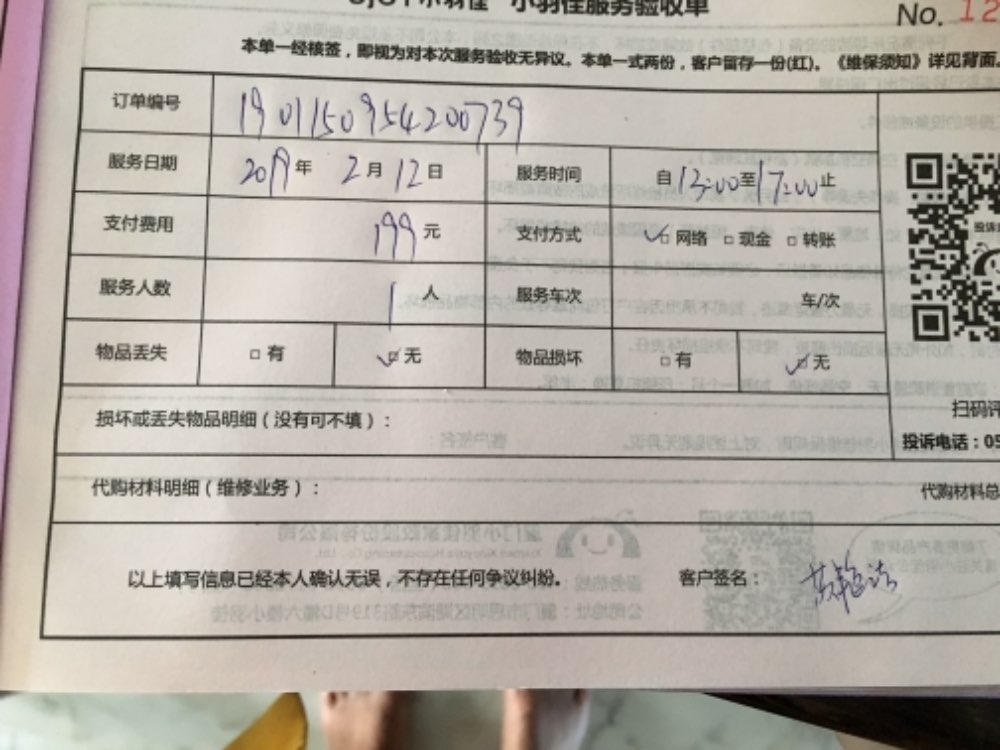 小羽佳服务验收单
No. 12
本单一经核签，即视为对本次服务验收无异议。本单一式两份，客户留存一份(红)。《维保须知》详见背面。
订单编号 1901150954200739
服务日期 2019年 2月12日 服务时间 自13:00至17:00止
支付费用 199元 支付方式 ✓□网络 □现金 □转账
服务人数 1人 服务车次 车/次
物品丢失 □有 ✓□无 物品损坏 □有 ✓□无
损坏或丢失物品明细（没有可不填）：
扫码评
投诉电话：05
代购材料明细（维修业务）：
代购材料总
以上填写信息已经本人确认无误，不存在任何争议纠纷。 客户签名：